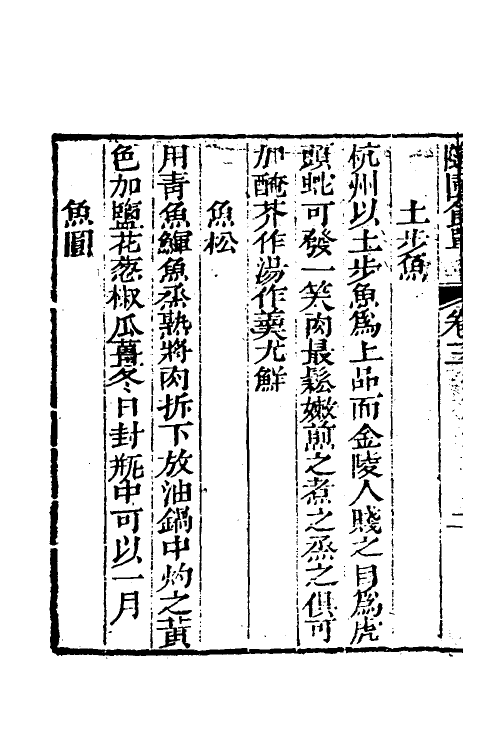 隨園食單
卷三
二
土步魚
杭州以土步魚爲上品而金陵人賤之目爲虎
頭虵可發一笑肉最鬆嫩煎之煮之蒸之俱可
加醃芥作湯作羹尤鮮
魚松
用青魚鯶魚蒸熟將肉拆下放油鍋中灼之黃
色加鹽花葱椒瓜薑冬日封瓶中可以一月
魚圓